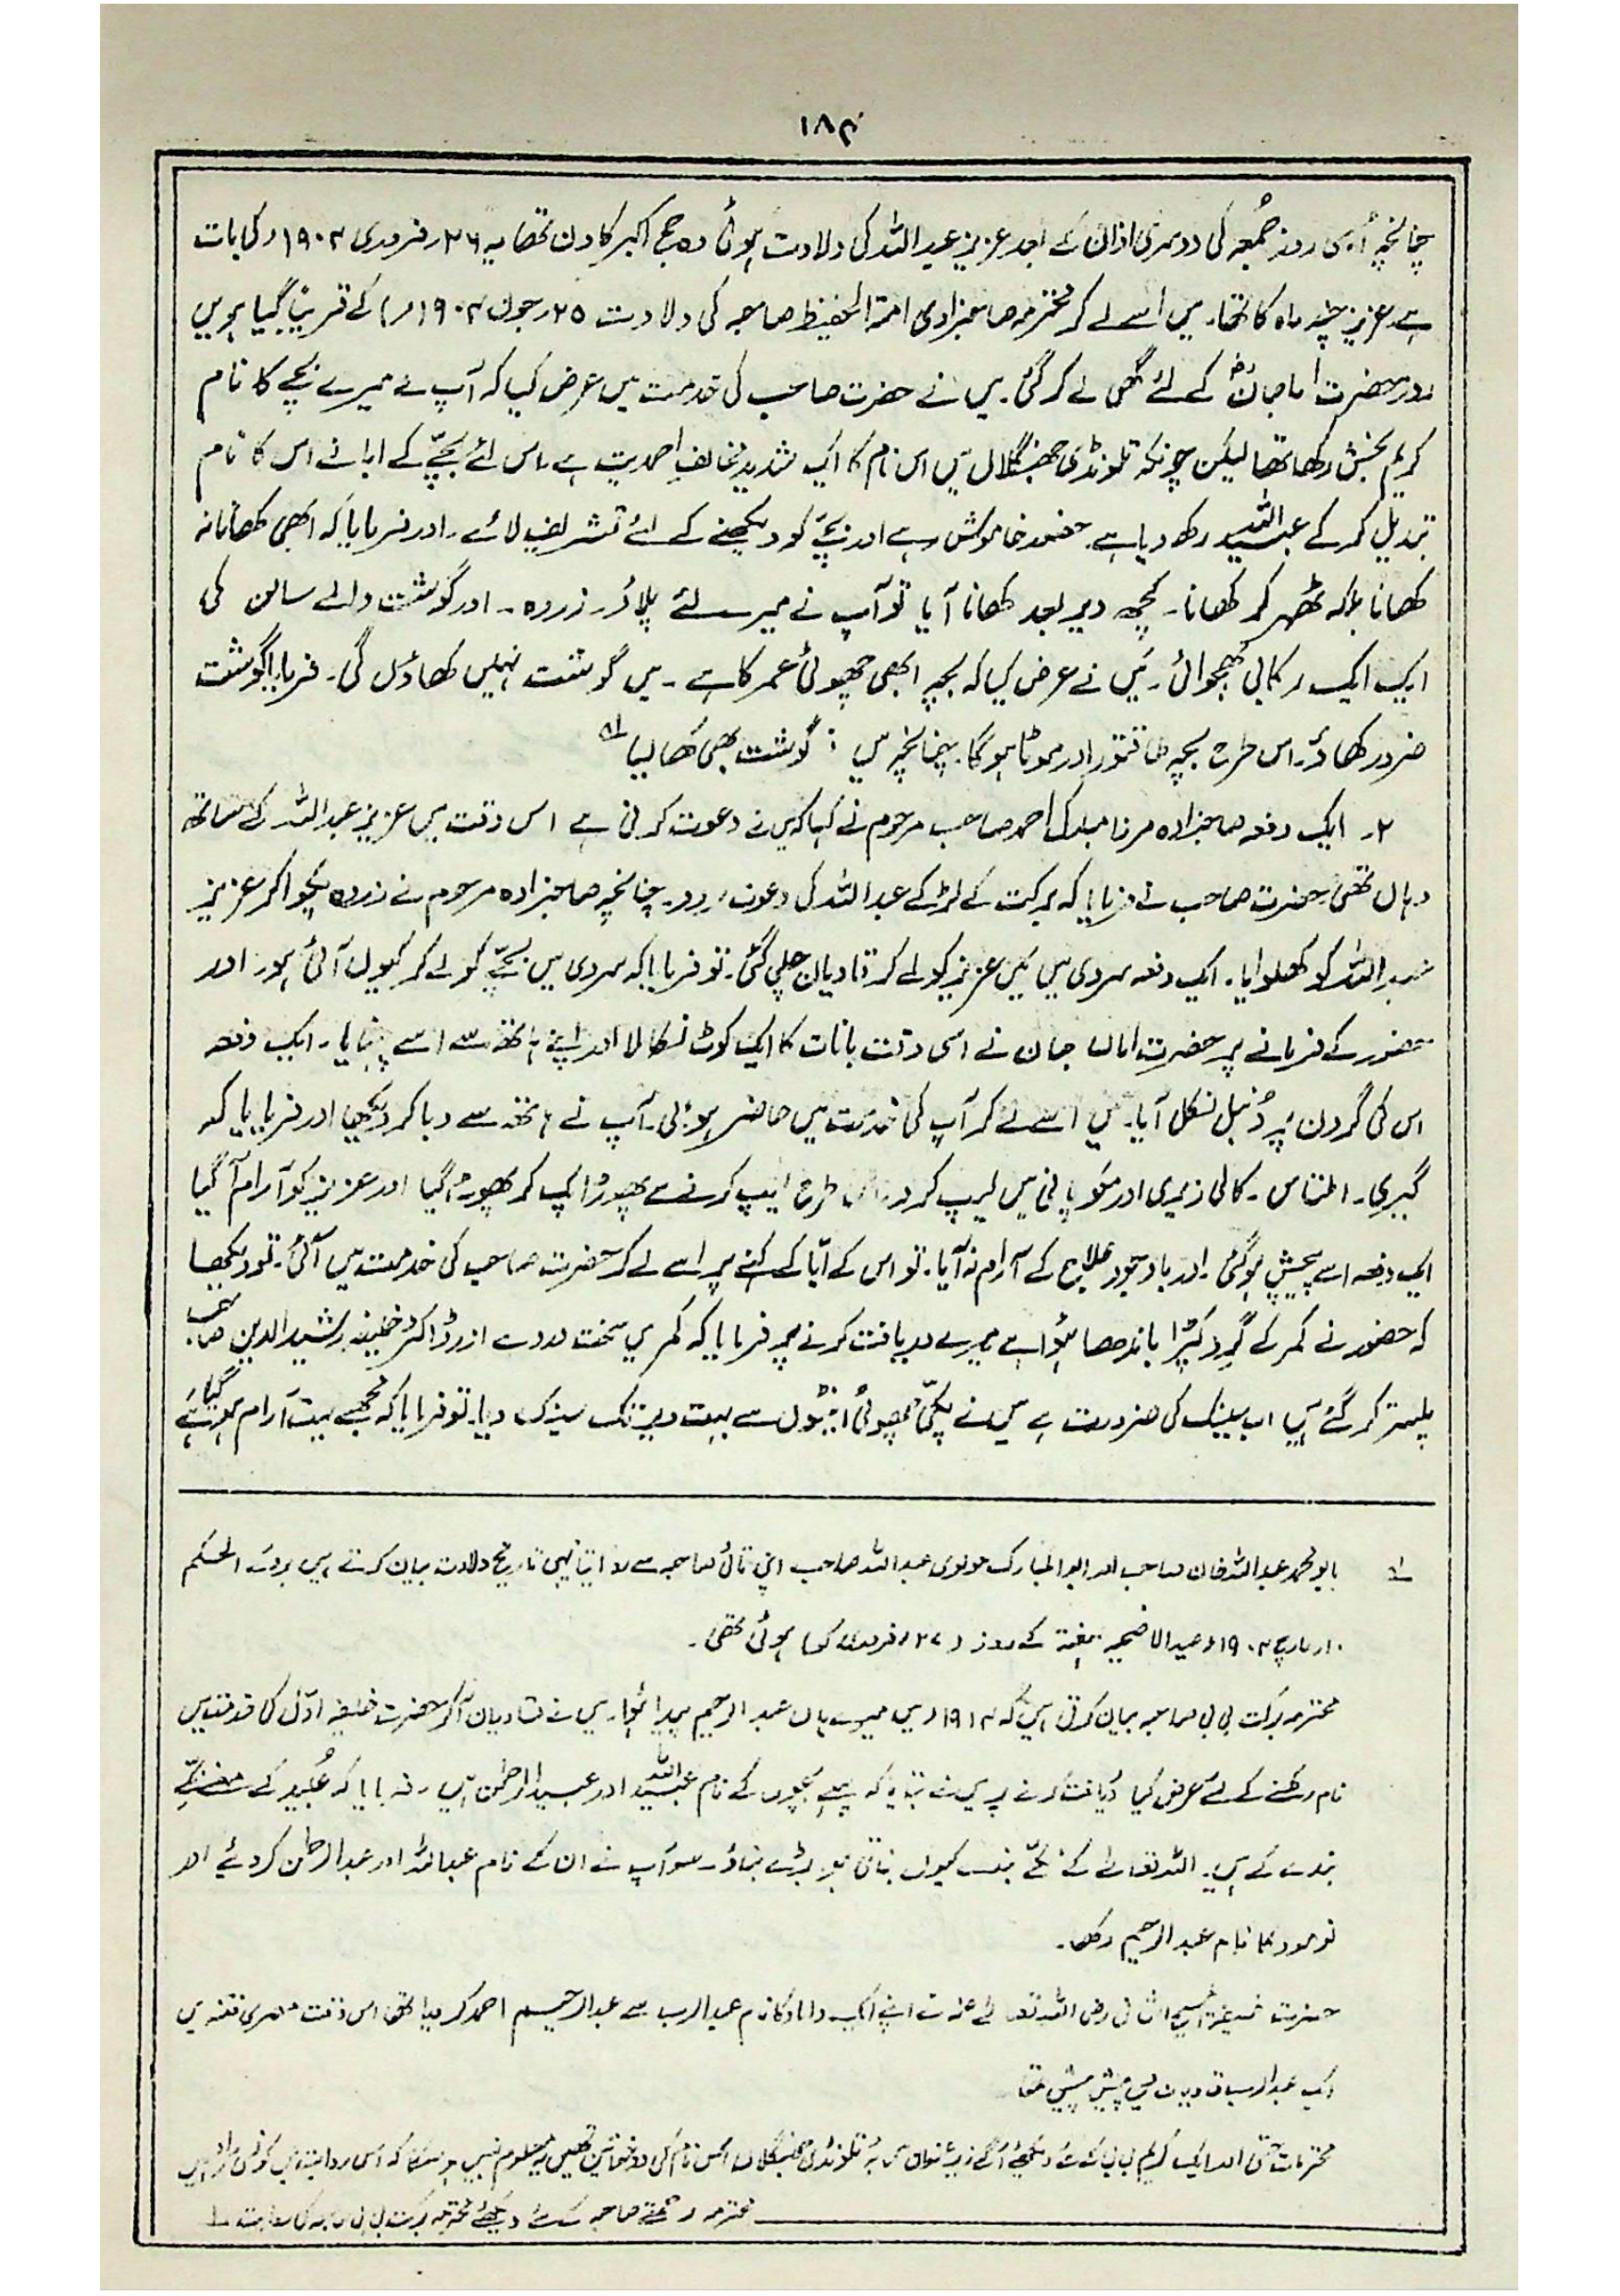 ۱۸۴
چنانچہ اُسی روز جُمعہ کی دوسری اذان کے بعد عزیز عبداللہ کی ولادت ہوئی وہ حج اکبر کا دن تھا یہ ۲۶؍ فروری ۱۹۰۴ء کی بات
ہے۔ عزیز چند ماہ کا تھا۔ میں اُسے لے کر محترمہ صاحبزادی امۃ الحفیظ صاحبہ کی ولادت ۲۵؍ جون ۱۹۰۴ء) کے قریب گیا ہویں
روز حضرت اماں جانؓ کے لئے گھی لے کر گئی۔ میں نے حضرت صاحب کی خدمت میں عرض کیا کہ آپ نے میرے بچے کا نام
کریم بخش رکھا تھا لیکن چونکہ تلونڈی جھنگلاں میں اس نام کا ایک شدید مخالف احمدیت ہے۔ اس لئے بچّے کے ابا نے اس کا نام
تبدیل کر کے عبید اللہ رکھ دیا ہے۔ حضور خاموش رہے اور بچّے کو دیکھنے کے لئے تشریف لائے۔ اور فرمایا کہ ابھی کھانا نہ
کھانا بلکہ ٹھہر کر کھانا۔ کچھ دیر بعد کھانا آیا تو آپ نے میرے لئے پلاؤ۔ زردہ۔ اور گوشت والے سالن کی
ایک ایک رکابی بھجوائی۔ مَیں نے عرض کیا کہ بچہ ابھی چھوٹی عمر کا ہے۔ میں گوشت نہیں کھاؤں گی۔ فرمایا گوشت
ضرور کھاؤ۔ اس طرح بچہ طاقتور اور موٹا ہوگا۔ چنانچہ میں نے گوشت بھی کھا لیا ؎
۲۔ ایک دفعہ صاحبزادہ مرزا مبارک احمد صاحب مرحوم نے کہا کہ میں نے دعوت کرنی ہے اس وقت میں عزیز عبداللہ کے ساتھ
وہاں تھی۔ حضرت صاحب نے فرمایا کہ برکت کے لڑکے عبداللہ کی دعوت کردو۔ چنانچہ صاحبزادہ مرحوم نے زردہ پکوا کر عزیز
عبداللہ کو کھلوایا۔ ایک دفعہ سردی میں مَیں عزیز کو لے کر قادیان چلی گئی۔ تو فرمایا کہ سردی میں بچّے کو لے کر کیوں آئی ہو۔ اور
حضور کے فرمانے پر حضرت اماں جان نے اسی وقت بانات کا ایک کوٹ نکالا اور اپنے ہاتھ سے اسے پہنایا۔ ایک دفعہ
اس کی گردن پر دُنبل نکل آیا۔ میں اسے لے کر آپ کی خدمت میں حاضر ہوئی۔ آپ نے ہاتھ سے دبا کر دیکھا اور فرمایا کہ
گیری۔ املتاس۔ کالی زیری اور مکو پانی میں لیپ کر دو۔ اس طرح لیپ کرنے سے پھوڑا پک کر پھوٹ گیا اور عزیز کو آرام آ گیا
ایک دفعہ اسے پیچش ہو گئی۔ اور باوجود علاج کے آرام نہ آیا۔ تو اس کے ابّا کے کہنے پر اسے لے کر حضرت صاحب کی خدمت میں آئی۔ تو دیکھا
کہ حضور نے کمر کے گرد کپڑا باندھا ہؤا ہے میرے دریافت کرنے پر فرمایا کہ کمر میں سخت درد ہے اور ڈاکٹر خلیفہ رشید الدین صاحب
پلستر کر گئے ہیں اب سینک کی ضرورت ہے میں نے پکی چھوٹی اینٹوں سے بہت دیر تک سینک دیا۔ تو فرمایا کہ مجھے بہت آرام ہو گیا ہے
؎ بابو محمد عبداللہ خان صاحب اور ابوالمبارک مولوی عبداللہ صاحب اپنی تائی صاحبہ سے روایتاً یہی تاریخ ولادت بیان کرتے ہیں بروئے الحکم
۱۰؍ مارچ ۱۹۰۴ء عید الاضحیہ ہفتہ کے روز (۲۷؍ فروری کو) ہوئی تھی۔
محترمہ برکت بی بی صاحبہ بیان کرتی ہیں کہ ۱۹۱۲ء میں میرے ہاں عبدالرحیم پیدا ہؤا۔ میں نے قادیان آکر حضرت خلیفہ اوّل کی خدمت میں
نام رکھنے کے لئے عرض کیا دریافت کرنے پر میں نے بتایا کہ پہلے بچوں کے نام عبید اللہ اور عبید الرحمٰن ہیں۔ فرمایا کہ عُبید کے معنے نکمّے
بندے کے ہیں۔ اللہ تعالےٰ کے نکمّے بندے کیوں بناتی ہو بڑے بناؤ۔ سو آپ نے ان کے نام عبداللہ اور عبدالرحمٰن کر دیئے اور
نومولود کا نام عبدالرحیم رکھا۔
حضرت خلیفۃ المسیح الثانی رضی اللہ تعالےٰ عنہ نے اپنے ایک داماد کا نام عبدالرب سے عبدالرحیم احمد کر دیا تھا اس وقت مصری فتنہ میں
ایک عبدالرب قادیان میں پیش پیش تھا
محترمہ برکت بی بی صاحبہ کی روایت